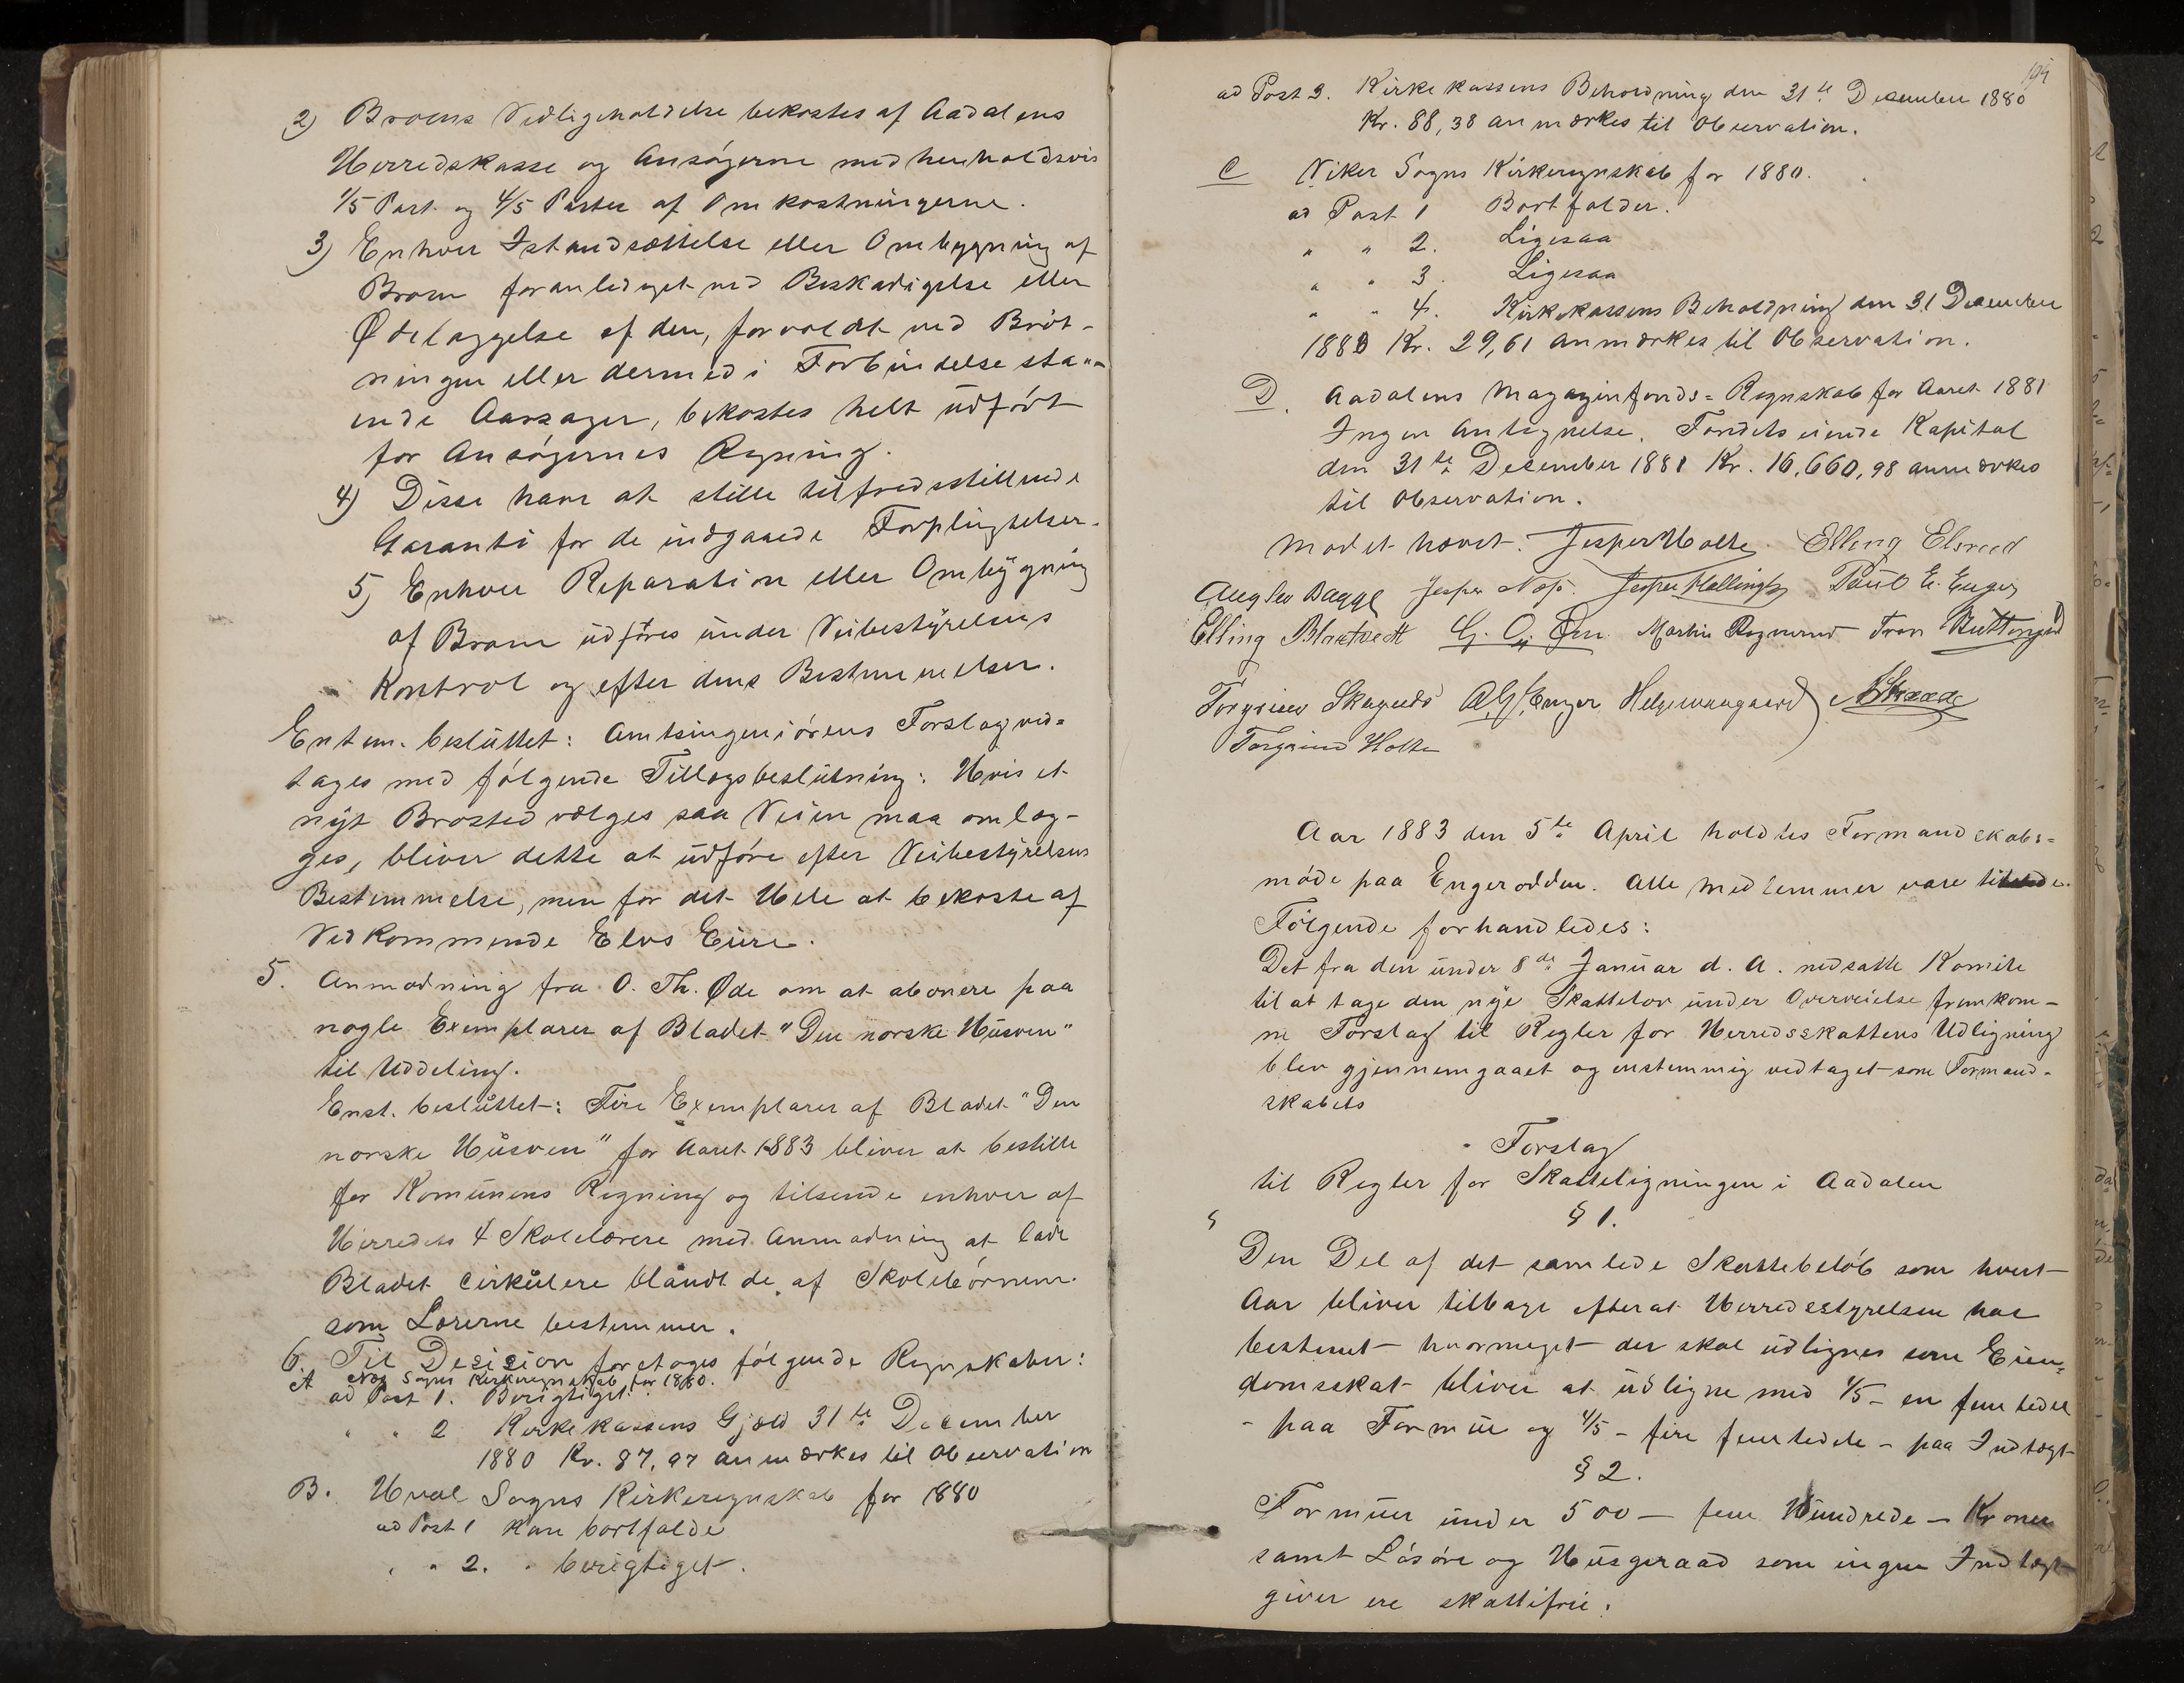 2) Broens Vedligeholdelse bekostes af Aadalens
Herredskasse og Ansøgerne med henholdsvis
1/5 Part og 4/5 Parter af Omkostningerne.
3) Enhver Istandsættelse eller Ombygning af
Broen foranlediget ved Beskadigelse eller
Ødelæggelse af den, forvoldt ved Bröt-
ningen eller dermed i Forbindelse sta-
ende Aarsager, bekostes helt udført
for Ansøgernes Regning.
4) Disse have at stille tilfredsstillende
Garanti for de indgaaede Forpligtelser.
5) Enhver Reparation eller Ombygning
af Broen udføres under Veibestyrelsens
Kontrol og efter dens Bestemmelser.
Enstem. besluttet: Amtsingeniørens Forslag ved-
tages med følgende Tillægsbeslutning: Hvis et
nyt Brosted vælges saa Veien maa omlæg-
ges, bliver dette at udføre efter Veibestyrelsens
Bestemmelse, men for det Hele at bekoste af
Vedkommende Elvs Eiere.
5. Anmodning fra O. Th. Øde om at abonere paa
nogle Exemplarer af Bladet "Den norske Husven"
til Uddeling.
Enst. besluttet: Fire Exemplarer af Bladet "Den
norske Husven" for Aaret 1883 bliver at bestille
for Komunens Regning og tilsende enhver af
Herredets 4 Skolelærere med Anmodning at lade
Bladet cirkulere blandt de af Skolebørnene
som Lærerne bestemmer.
6. Til Desision foretoges følgende Regnskaber:
A Næs Sogns Kirkeregnskab for 1880.
ad Post 1. Berigtiget.
" " 2 Kirkekassens Gjæld 31te December
1880 Kr. 87,97 anmærkes til Observation
B. Hval Sogns Kirkeregnskab for 1880
ad Post 1 kan bortfalde
" " 2. " berigtiget.
194
ad Post 3. Kirkekassens Beholdning den 31te Desember 1880
Kr. 88,38 anmærkes til Observation.
C Viker Sogns Kirkeregnskab for 1880.
ad Post 1 Bortfalder.
" " 2. Ligesaa
" " 3. Ligesaa
" " 4. Kirkekassens Beholdning den 31 Desember
1880 Kr. 29,61 anmærkes til Observation.
D. Aadalens Magazinfonds-Regnskab for Aaret 1881
Ingen Antegnelse. Fondets eiende Kapital
den 31te Desember 1881 Kr. 16,660,98 anmærkes
til Observation.
Mødet hævet. Jesper Holte. Elling Elsrud
Jesper Næs. Paul E. Enger
Elling G. O. Øen. Martin Rognerud Iver
Torgrim A. G. Enger Helge
Torgrim Holte
Aar 1883 den 5te April holdtes Formandskabs-
møde paa Engerodden. Alle Medlemmer vare tilstede.
Følgende forhandledes:
Det fra den under 8de Januar d. A. nedsatte Komite
til at tage den nye Skattelov under Overveielse fremkom-
ne Forslag til Regler for Herredsskattens Udligning
blev gjennemgaaet og enstemmig vedtaget som Formand-
skabets
Forslag
til Regler for Skatteligningen i Aadalen
§ 1.
Den Del af det samlede Skattebeløb som hvert
Aar bliver tilbage efterat Herredsstyrelsen har
bestemt hvormeget der skal udlignes som Eien-
domsskat bliver at udligne med 1/5 - en femtedel
- paa Formue og 4/5 - fire femtedele - paa Indtægt
§ 2.
Formuer under 500 - fem Hundrede - Kroner
samt Løsøre og Husgeraad som ingen Indtægt
giver ere skattefrie.